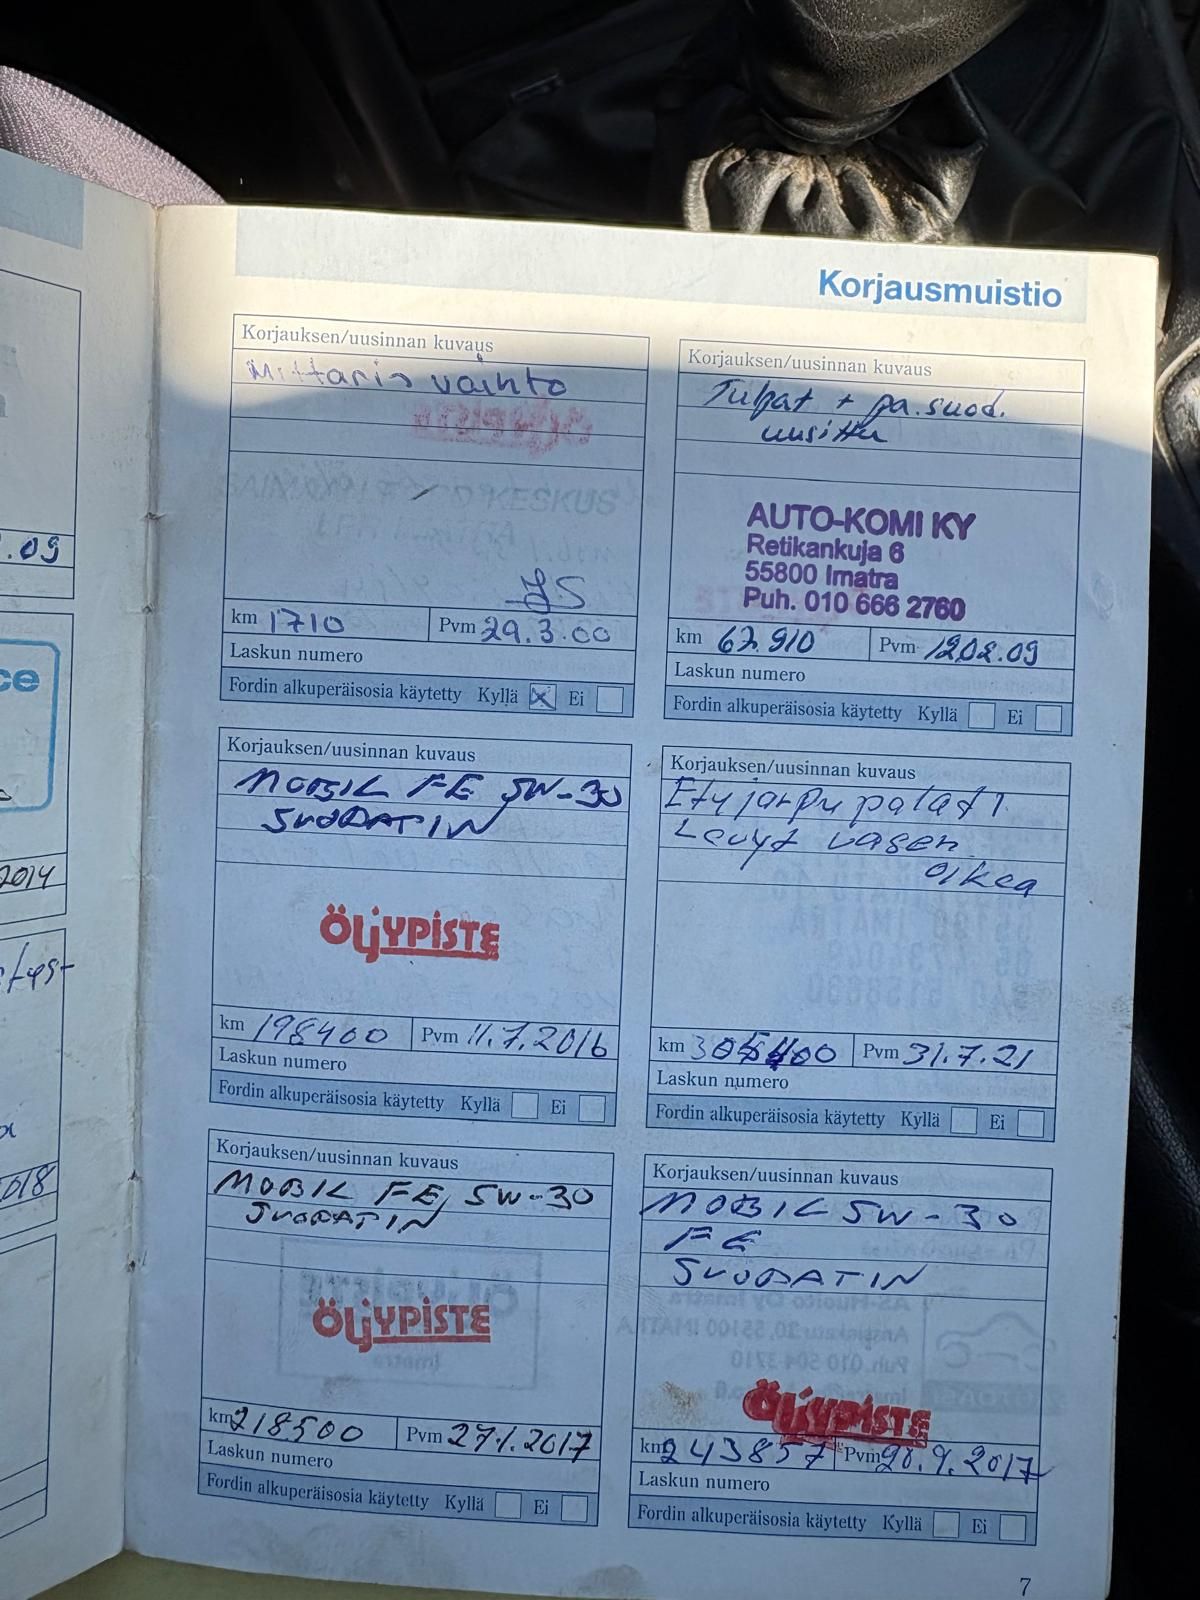 Korjausmuistio
Korjauksen/uusinnan kuvaus
Mittarin vaihto
JS
km 1710 Pvm 29.3.00
Laskun numero
Fordin alkuperäisosia käytetty Kyllä Ei
Korjauksen/uusinnan kuvaus
Tulpat + pa.suod.
uusittu
AUTO-KOMI KY
Retikankuja 6
55800 Imatra
Puh. 010 666 2760
km 67.910 Pvm 12.02.09
Laskun numero
Fordin alkuperäisosia käytetty Kyllä Ei
Korjauksen/uusinnan kuvaus
MOBIL FE 5W-30
SUODATIN
ÖLJYPISTE
km 198400 Pvm 11.7.2016
Laskun numero
Fordin alkuperäisosia käytetty Kyllä Ei
Korjauksen/uusinnan kuvaus
Etujarru palat 1.
Levyt vasen
oikea
km 305400 Pvm 31.7.21
Laskun numero
Fordin alkuperäisosia käytetty Kyllä Ei
Korjauksen/uusinnan kuvaus
MOBIL FE, 5W-30
SUODATIN
ÖLJYPISTE
km 218500 Pvm 27.1.2017
Laskun numero
Fordin alkuperäisosia käytetty Kyllä Ei
Korjauksen/uusinnan kuvaus
MOBIL 5W-30
FE
SUODATIN
ÖLJYPISTE
km 243857 Pvm 20.9.2017
Laskun numero
Fordin alkuperäisosia käytetty Kyllä Ei
7
.09
ce
2014
018